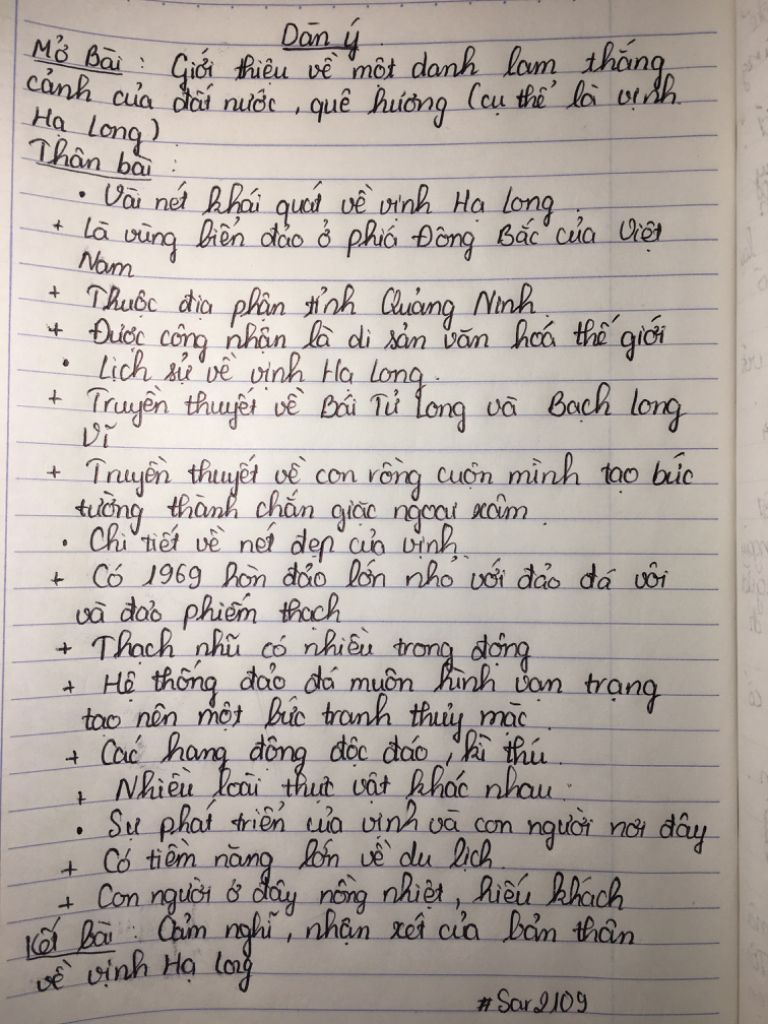 Dàn ý
Mở Bài : Giới thiệu về một danh lam thắng
cảnh của đất nước, quê hương (cụ thể là vịnh
Hạ Long)
Thân bài :
• Vài nét khái quát về vịnh Hạ Long.
+ Là vùng biển đảo ở phía Đông Bắc của Việt
Nam
+ Thuộc địa phận tỉnh Quảng Ninh
+ Được công nhận là di sản văn hoá thế giới
• Lịch sử về vịnh Hạ Long.
+ Truyền thuyết về Bái Tử Long và Bạch Long
Vĩ
+ Truyền thuyết về con rồng cuộn mình tạo bức
tường thành chắn giặc ngoại xâm.
• Chi tiết về nét đẹp của vịnh
+ Có 1969 hòn đảo lớn nhỏ với đảo đá vôi
và đảo phiếm thạch
+ Thạch nhũ có nhiều trong động
+ Hệ thống đảo đá muôn hình vạn trạng
tạo nên một bức tranh thuỷ mặc.
+ Các hang động độc đáo, kì thú.
+ Nhiều loài thực vật khác nhau.
• Sự phát triển của vịnh và con người nơi đây
+ Có tiềm năng lớn về du lịch.
+ Con người ở đây nồng nhiệt, hiếu khách
Kết Bài : Cảm nghĩ, nhận xét của bản thân
về vịnh Hạ Long
#Sar2109